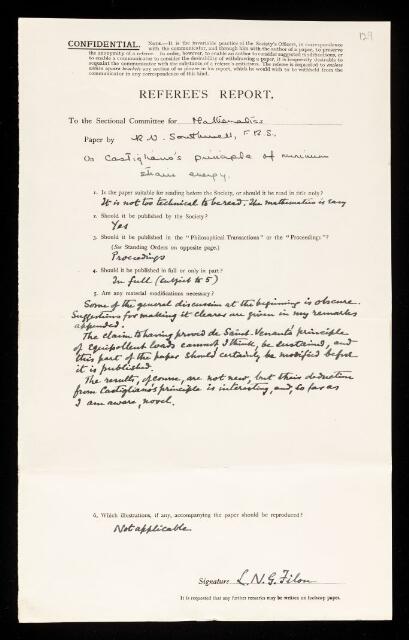 129
CONFIDENTIAL. NOTE.—It is the invariable practice of the Society's Officers, in correspondence
with the communicator, and through him with the author of a paper, to preserve
the anonymity of a referee. In order, however, to enable an author to consider suggested modifications, or
to enable a communicator to consider the desirability of withdrawing a paper, it is frequently desirable to
acquaint the communicator with the substance of a referee's criticisms. The referee is requested to enclose
within square brackets any section of his present report, which he would wish to be withheld from the
communicator in any correspondence of this kind.
REFEREE'S REPORT.
To the Sectional Committee for Mathematics
Paper by R. V. Southwell, F.R.S.
On Castigliano's principle of minimum
strain energy.
1. Is the paper suitable for reading before the Society, or should it be read in title only?
It is not too technical to be read. The mathematics is easy
2. Should it be published by the Society?
Yes
3. Should it be published in the "Philosophical Transactions" or the "Proceedings"?
(See Standing Orders on opposite page.)
Proceedings
4. Should it be published in full or only in part?
In full (subject to 5)
5. Are any material modifications necessary?
Some of the general discussion at the beginning is obscure.
Suggestions for making it clearer are given in my remarks
appended.
The claim to having proved de Saint-Venant's principle
of equipollent loads cannot, I think, be sustained, and
this part of the paper should certainly be modified before
it is published.
The results, of course, are not new, but their deduction
from Castigliano's principle is interesting, and, so far as
I am aware, novel.
6. Which illustrations, if any, accompanying the paper should be reproduced?
Not applicable
Signature L. N. G. Filon
It is requested that any further remarks may be written on foolscap paper.